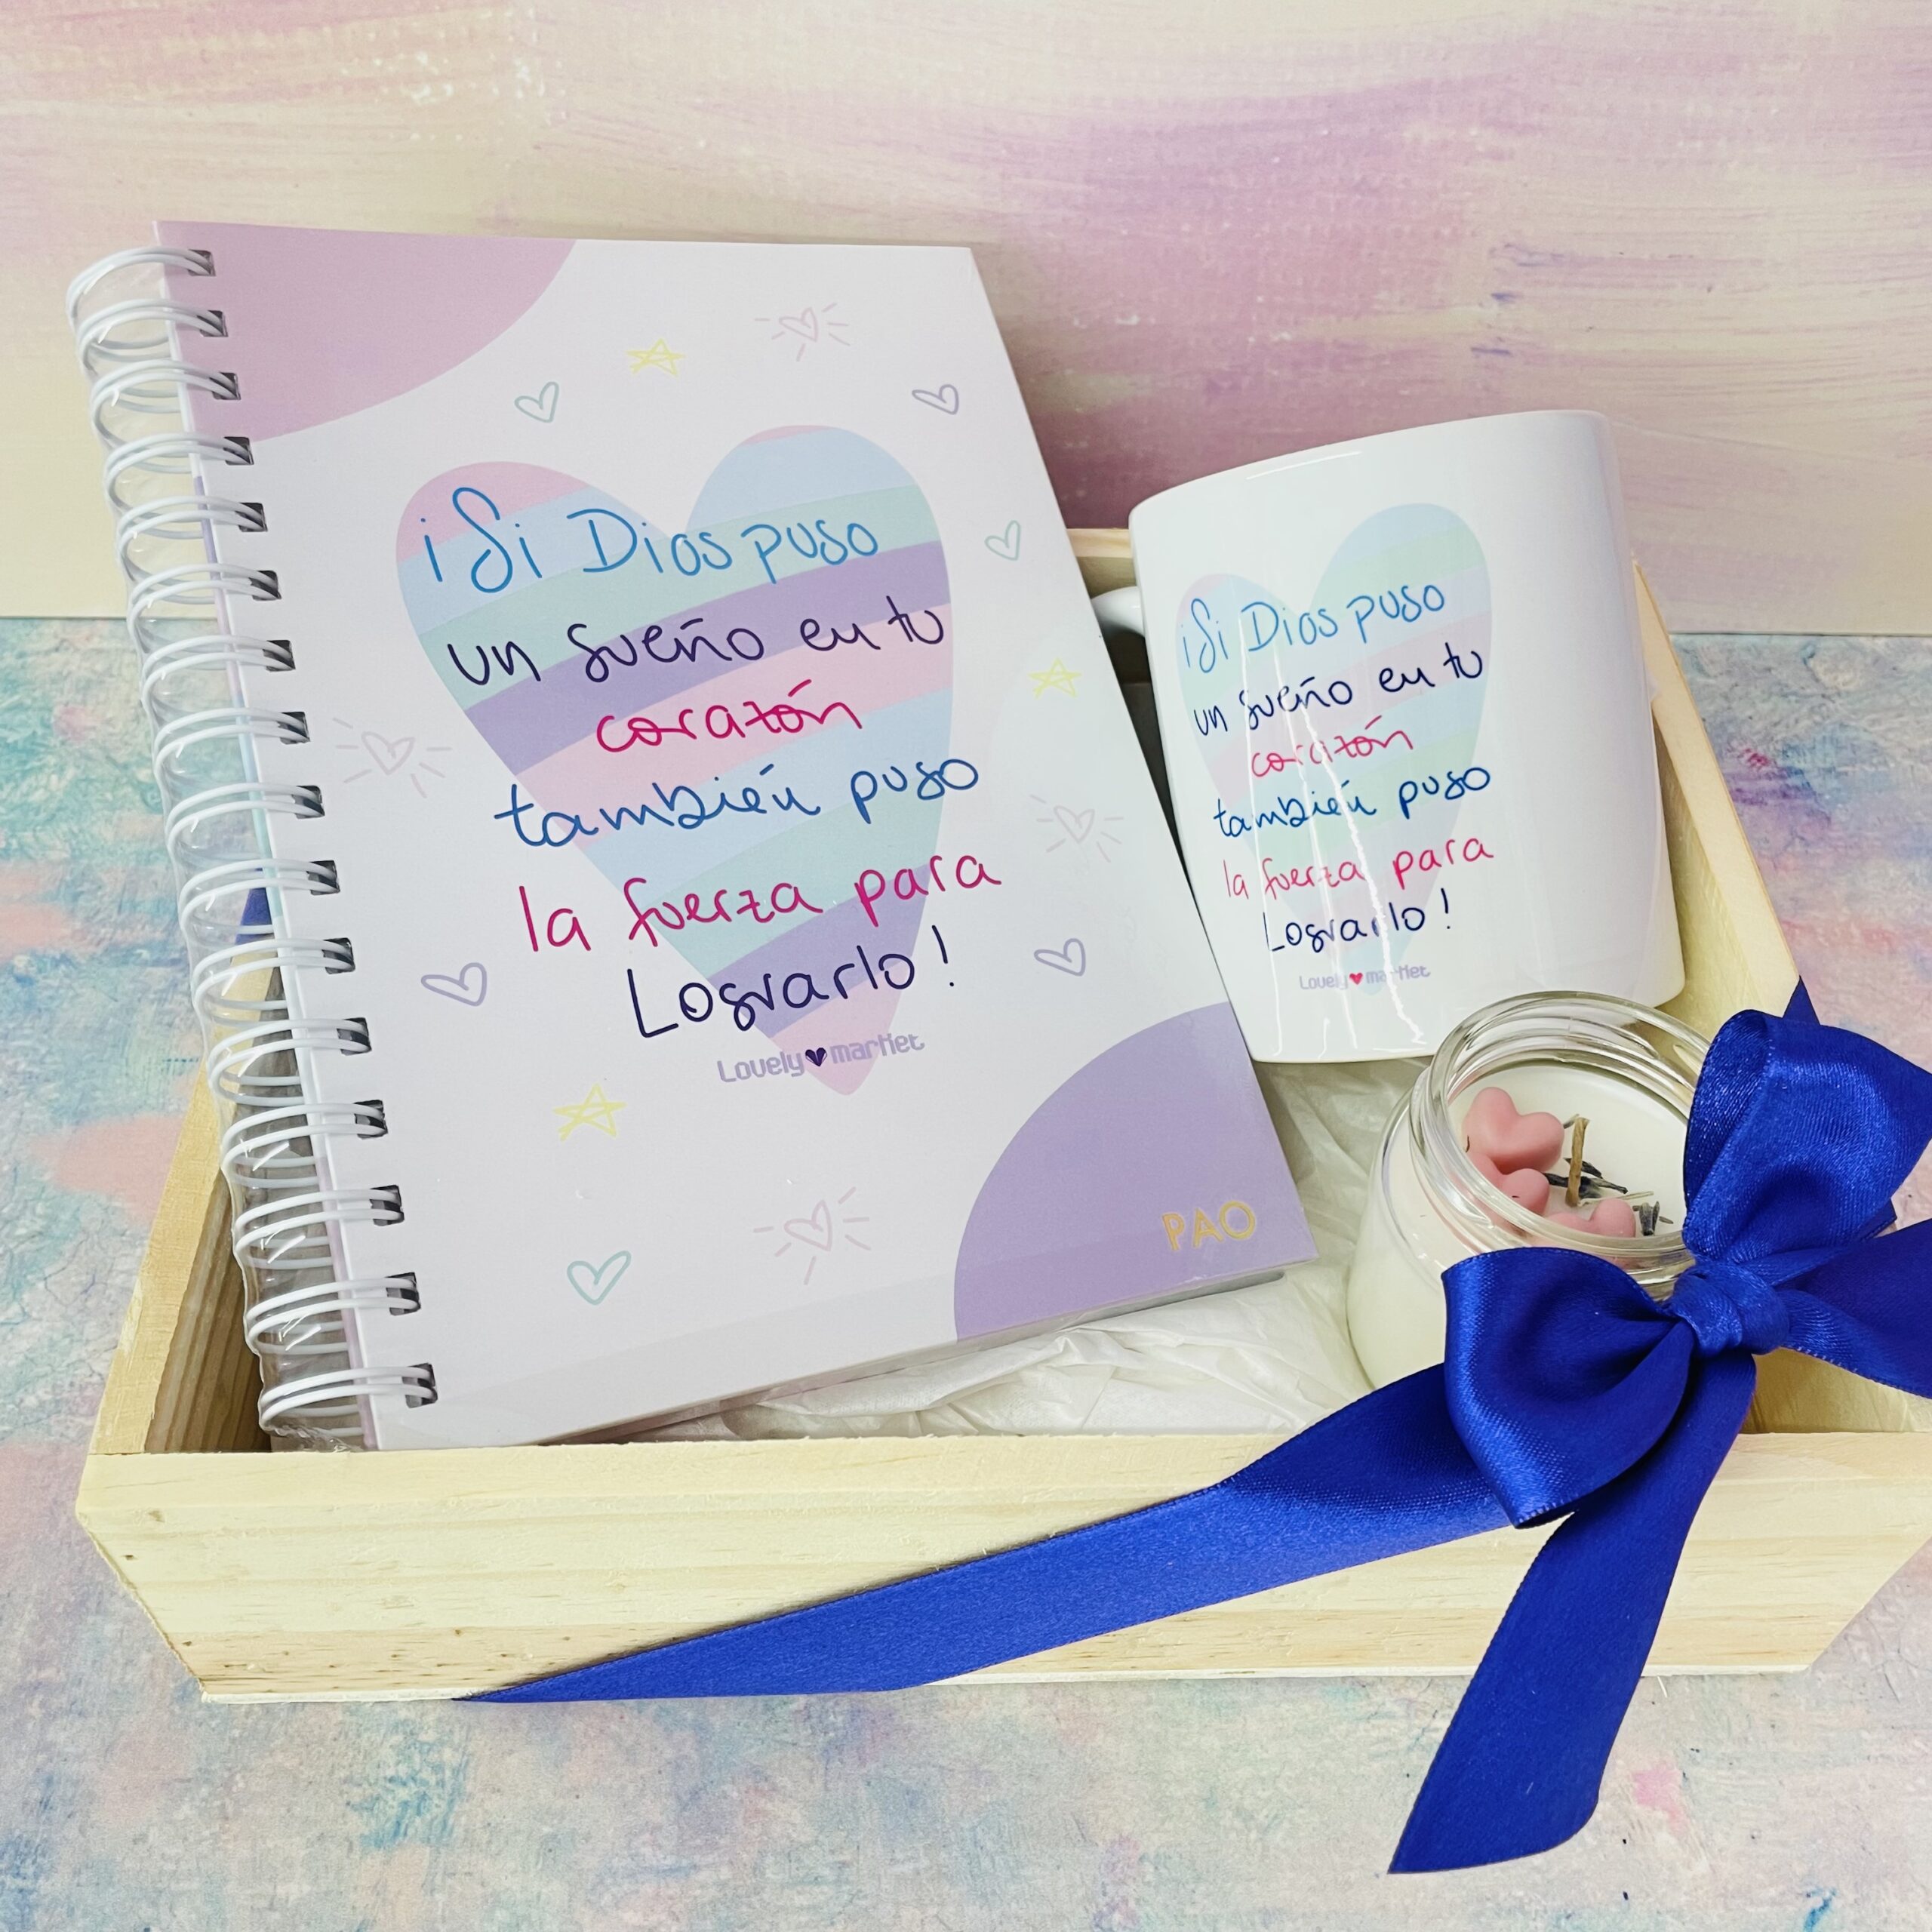 ¡Si Dios puso
un sueño en tu
corazón
también puso
la fuerza para
Lograrlo!
Lovely market
PAO
¡Si Dios puso
un sueño en tu
corazón
también puso
la fuerza para
Lograrlo!
Lovely market